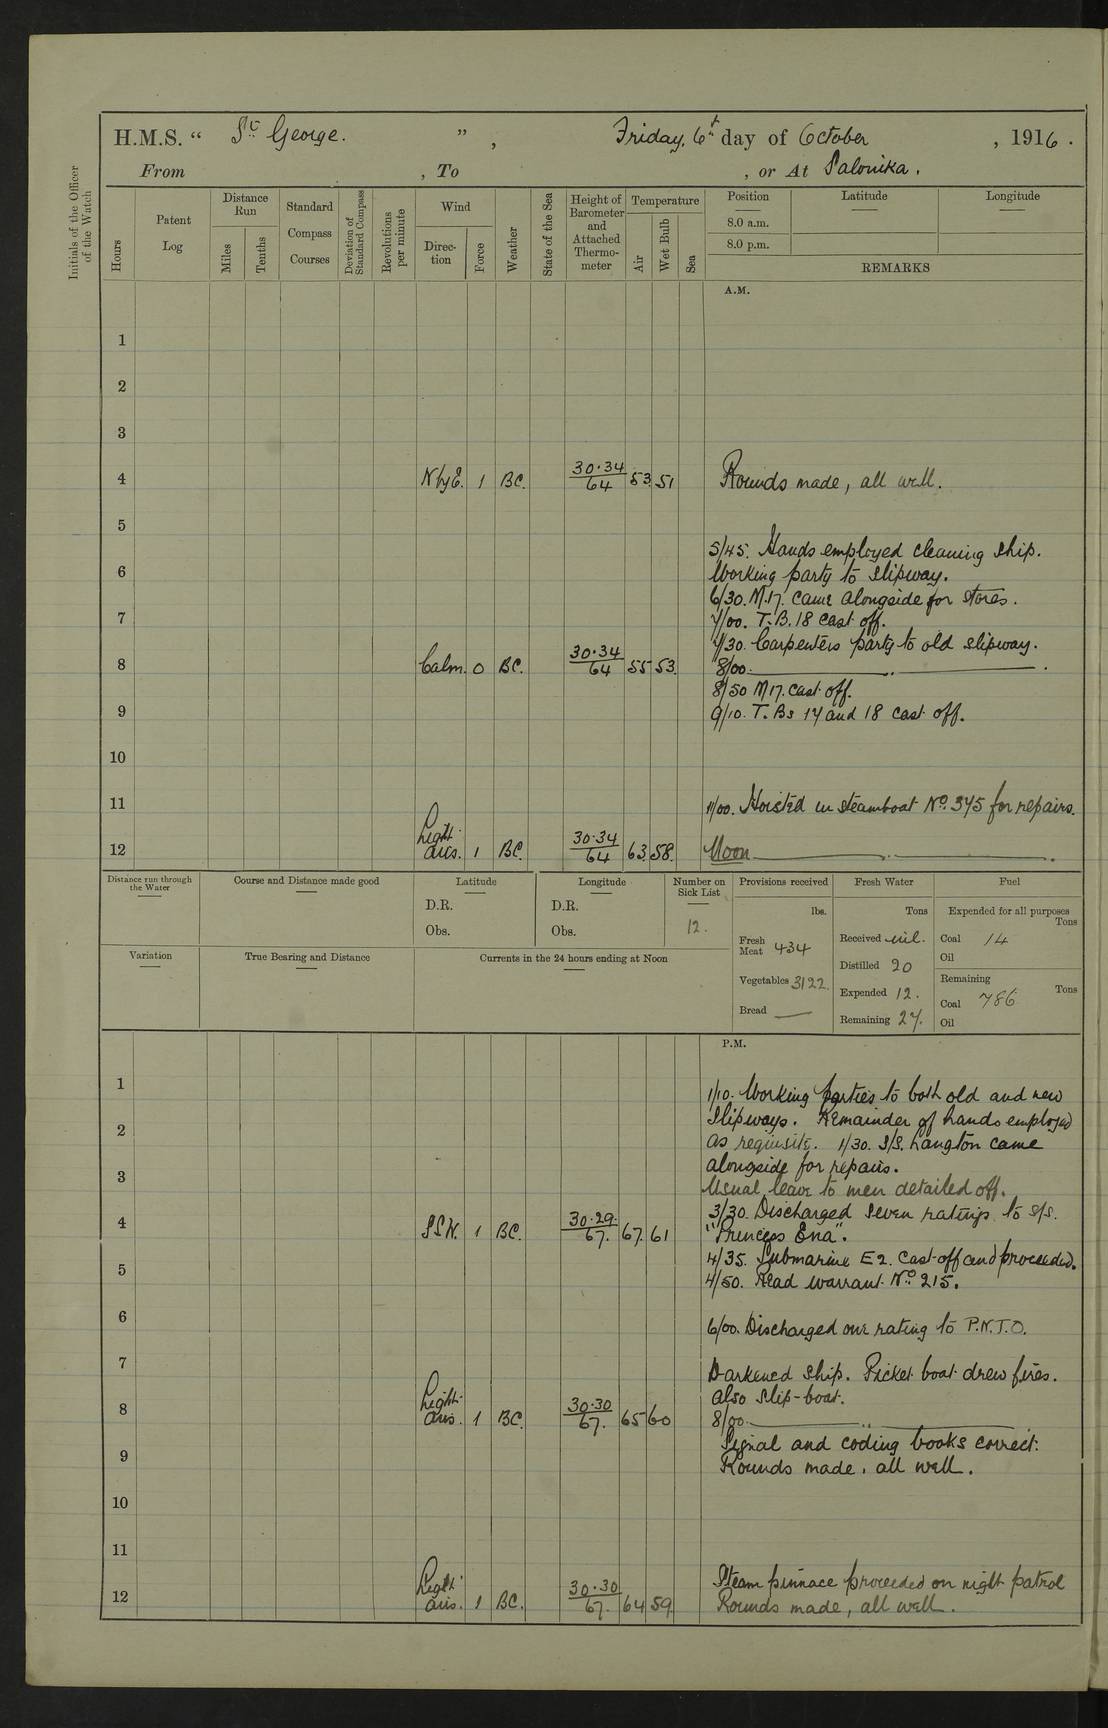 H.M.S. “ St George. ”, Friday, 6th day of October, 1916.
From , To , or At Salonika.
Initials of the Officer of the Watch
Hours
Patent Log
Distance Run
Miles
Tenths
Standard Compass Courses
Deviation of Standard Compass
Revolutions per minute
Wind
Direction
Force
Weather
State of the Sea
Height of Barometer and Attached Thermometer
Temperature
Air
Wet Bulb
Sea
Position
Latitude
Longitude
8.0 a.m.
8.0 p.m.
REMARKS
A.M.
1
2
3
4 N by E. 1 BC. 30·34/64 53 51 Rounds made, all well.
5
5/45. Hands employed cleaning ship.
6 Working party to slipway.
6/30. M.17. came alongside for stores.
7 7/00. T.B. 18 cast off.
7/30. Carpenters party to old slipway.
8 Calm. 0 BC. 30·34/64 55 53. 8/00. ——— .. ——— .
8/50 M17. cast off.
9 9/10. T. Bs 17 and 18 cast off.
10
11 11/00. Hoisted in steamboat No. 375 for repairs.
12 Light airs. 1 BC. 30·34/64 63 58. Noon ——— . ——— .
Distance run through the Water
Course and Distance made good
Latitude
D.R.
Obs.
Longitude
D.R.
Obs.
Number on Sick List
12.
Provisions received
lbs.
Fresh Meat 434
Vegetables 3122.
Bread —
Fresh Water
Tons
Received nil.
Distilled 20
Expended 12.
Remaining 27.
Fuel
Expended for all purposes
Tons
Coal 14
Oil
Remaining
Tons
Coal 786
Oil
Variation
True Bearing and Distance
Currents in the 24 hours ending at Noon
P.M.
1 1/10. Working parties to both old and new
2 slipways. Remainder of hands employed
as requisite. 1/30. S/S. Langton came
3 alongside for repairs.
Usual leave to men detailed off.
4 S S W. 1 BC. 30·29./67. 67. 61 3/30 Discharged seven ratings to S/S.
“Princess Ena”.
5 4/35. Submarine E2. cast off and proceeded.
4/50. Read warrant No. 215.
6 6/00. Discharged one rating to P.N.T.O.
7 Darkened ship. Picket boat drew fires.
also slip-boat.
8 Light airs. 1 BC. 30·30/67. 65 60 8/00. ——— .. ———
Signal and coding books correct.
9 Rounds made, all well.
10
11
12 Light airs. 1 BC. 30·30/67. 64 59. Steam pinnace proceeded on night patrol
Rounds made, all well.